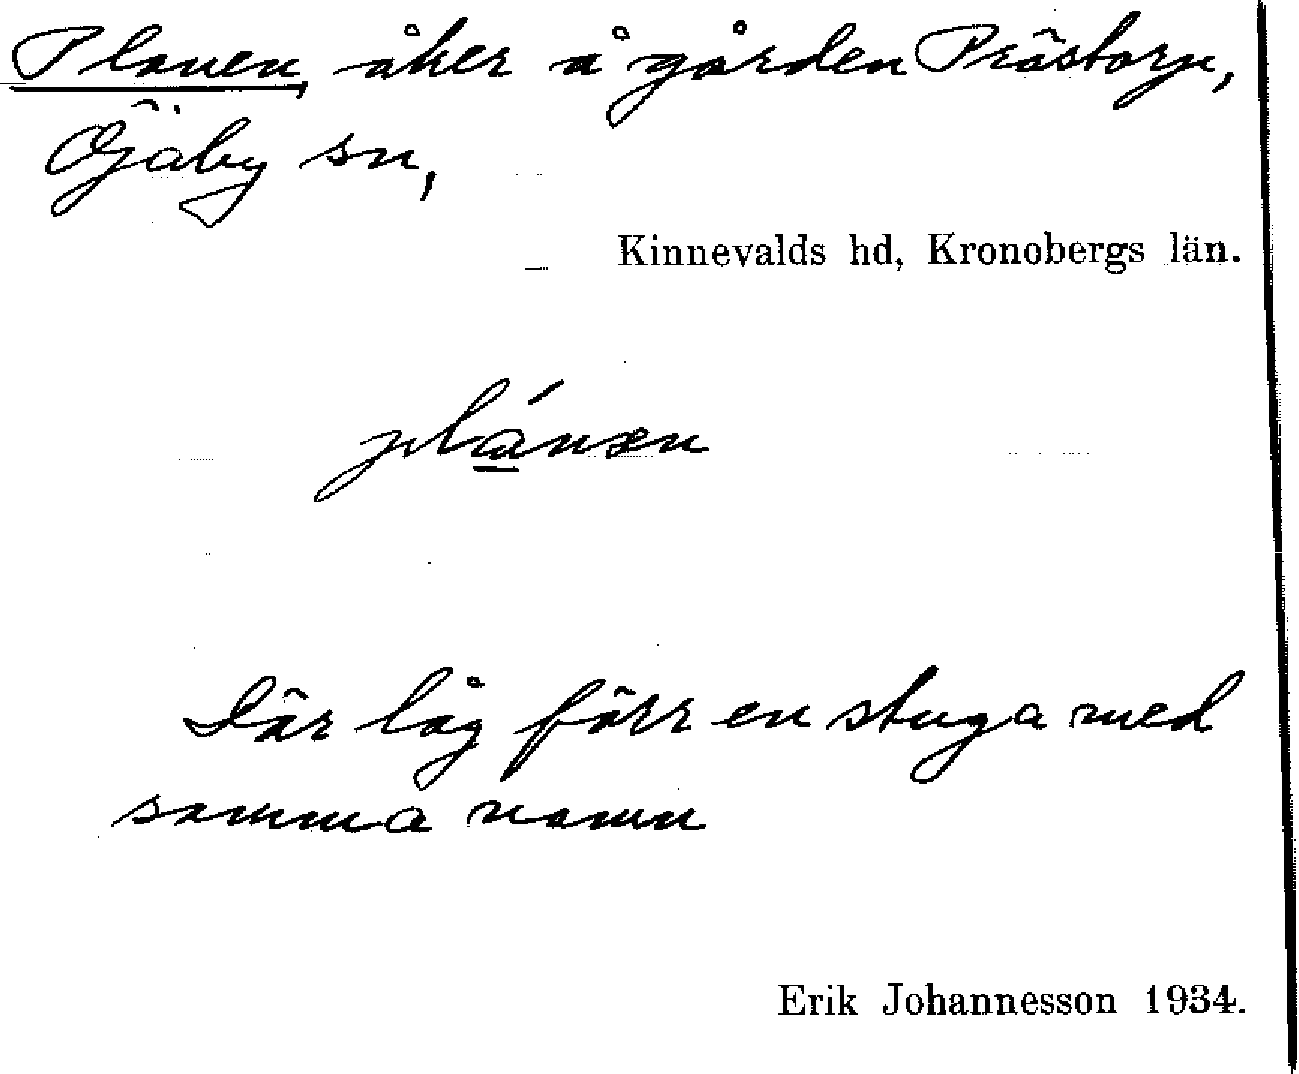 Planen, åker å gården Prästorp,
Öjaby sn,
Kinnevalds hd, Kronobergs län.
plánæn
Där låg förr en stuga med
samma namn
Erik Johannesson 1934.